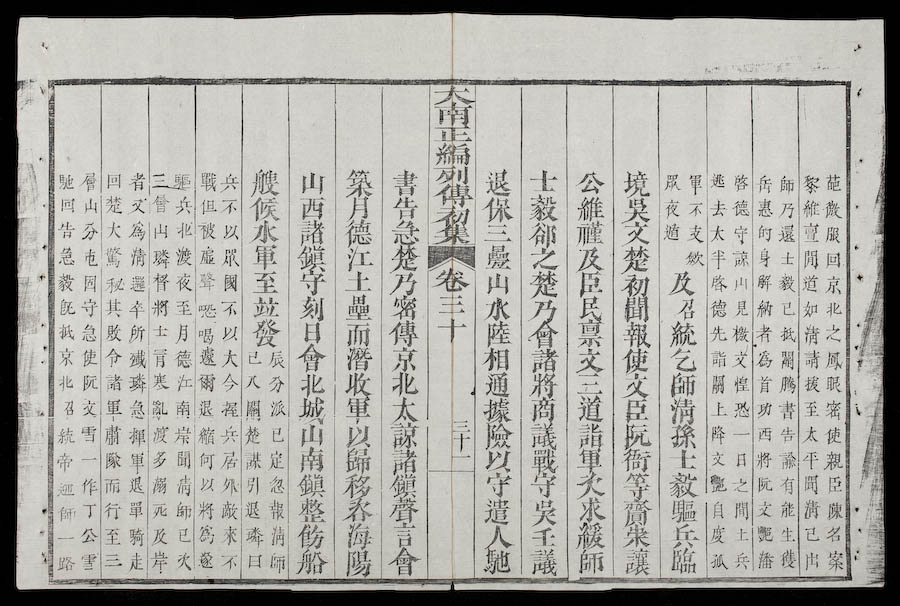 葩微服回京北之鳳眼密使親臣陳名案
黎維亶間道如清請援至太平聞清已出
師乃還士毅已抵關腾書告諭有能生獲
岳惠的身解納者為首功西將阮文艷潘
啓德守諒山見檄文惶恐一日之間士兵
逃去大半啓德先詣關上降文艷自度孤
軍不支歛
衆夜遁
及召統乞師清孫士毅驅兵臨
境吳文楚初聞報使文臣阮衙等賫朱讓
公維禋及臣民禀文三道詣軍次求緩師
士毅郤之楚乃會諸將商議戰守吳壬議
退保三疊山水陸相通據險以守遣人馳
大南正編列傳初集 卷三十 三十一
書告急楚乃密傳京北太諒諸鎮聲言會
築月德江土壘而潜收軍以歸移春海陽
山西諸鎮守刻日會北城山南鎮整飭船
艘候水軍至竝發
辰分派已定忽報清師
已入關楚謀引退璘曰
兵不以眾國不以大今握兵居外敵來不
戰但被虛聲恐喝遽爾退縮何以將為遂
驅兵北渡夜至月德江南岸聞清師已次
三層山璘督將士冒寒亂渡多溺死及岸
者又為清邏卒所殲璘急揮軍退單騎走
回楚大驚秘其敗令諸軍肅隊而行至三
層山分屯固守急使阮文雪一作丁公雪
馳回告急毅既抵京北召統帝迎師一路